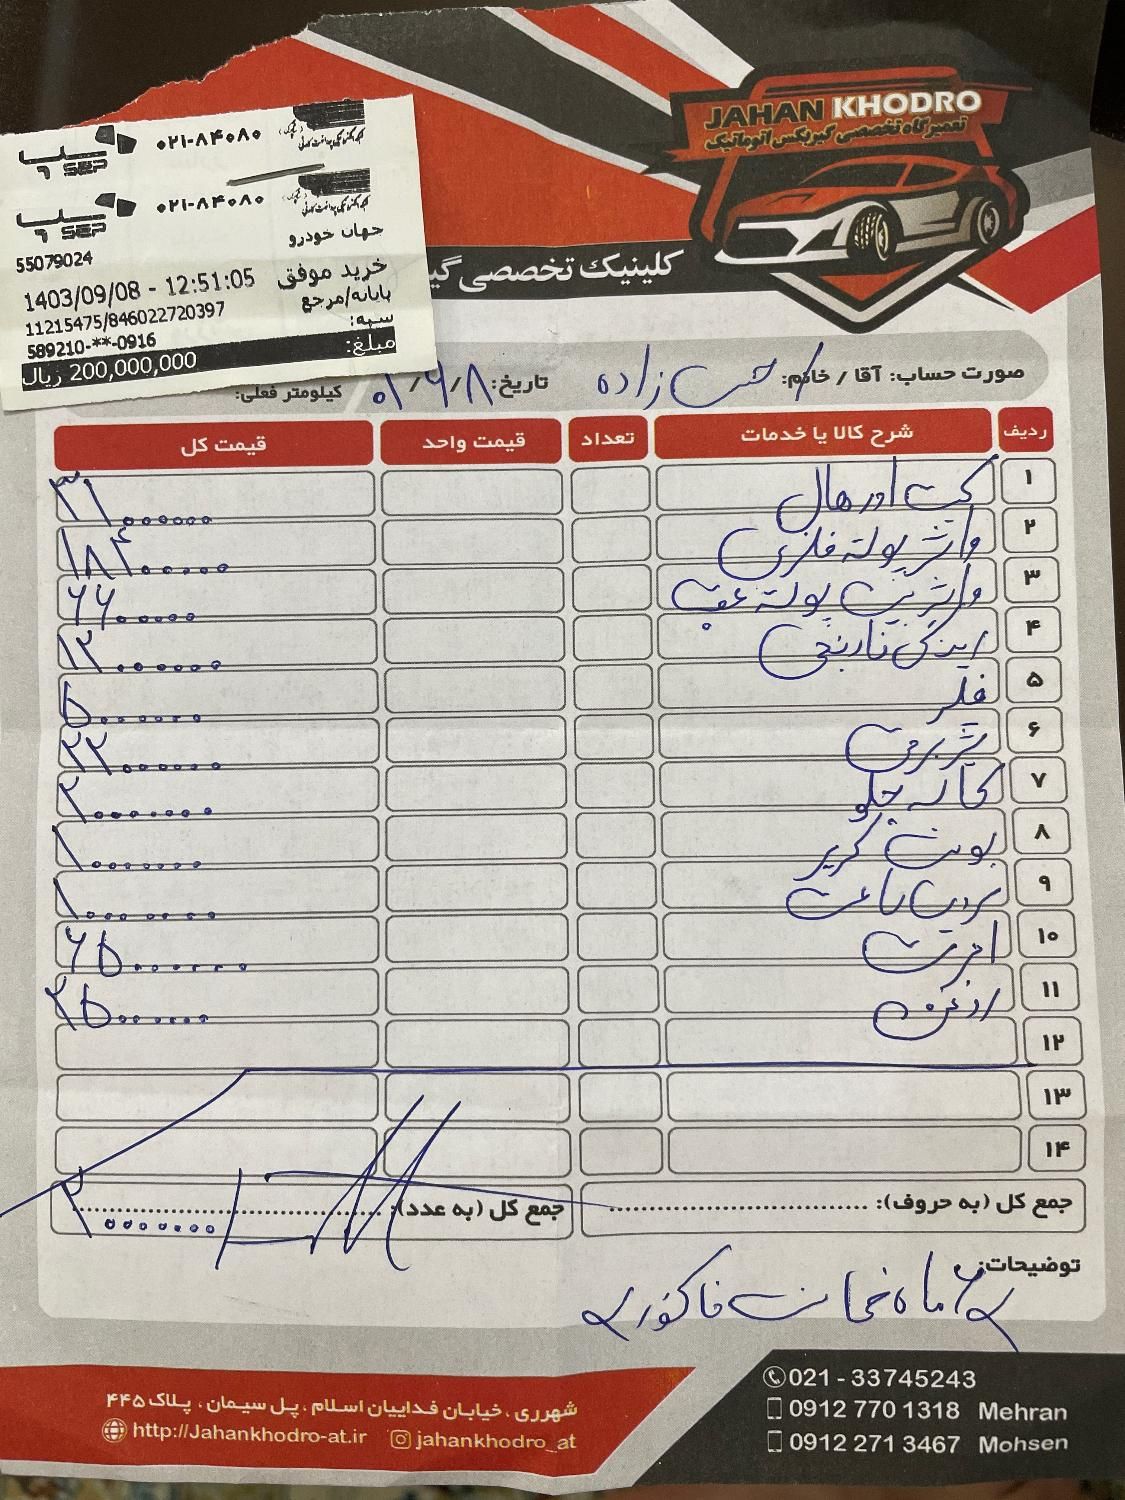 سپ SEP ۰۲۱-۸۴۰۸۰
سپ SEP ۰۲۱-۸۴۰۸۰
جهان خودرو
55079024
خرید موفق 1403/09/08 - 12:51:05
پایانه/مرجع
11215475/846022720397
سپه:
589210-**-0916
مبلغ: 200,000,000 ریال
JAHAN KHODRO
تعمیرگاه تخصصی گیربکس اتوماتیک
کلینیک تخصصی
صورت حساب: آقا / خانم: حسن زاده تاریخ: ۸ / ۹ / کیلومتر فعلی:
ردیف شرح کالا یا خدمات تعداد قیمت واحد قیمت کل
۱ کیت اورهال ۳۱۰۰۰۰۰۰
۲ واشر پوسته فلزی
۳ پوسته عقب ۶۶۰۰۰۰۰
۴ نارنجی ۱۲۰۰۰۰۰۰
۵ فلتر ۵۰۰۰۰۰۰
۶ ۲۲۰۰۰۰۰۰
۷ کاسه جلو ۲۰۰۰۰۰۰۰
۸ بوش کریر ۱۰۰۰۰۰۰۰
۹ ۱۰۰۰۰۰۰۰
۱۰ اجرت
۱۱ روغن ۲۵۰۰۰۰۰۰
۱۲
۱۳
۱۴
جمع کل (به حروف): جمع کل (به عدد):
توضیحات:
ماه ضمانت فاکتور
021 - 33745243
0912 770 1318 Mehran
0912 271 3467 Mohsen
شهرری ، خیابان فداییان اسلام ، پل سیمان ، پلاک ۴۴۵
http://Jahankhodro-at.ir jahankhodro_at